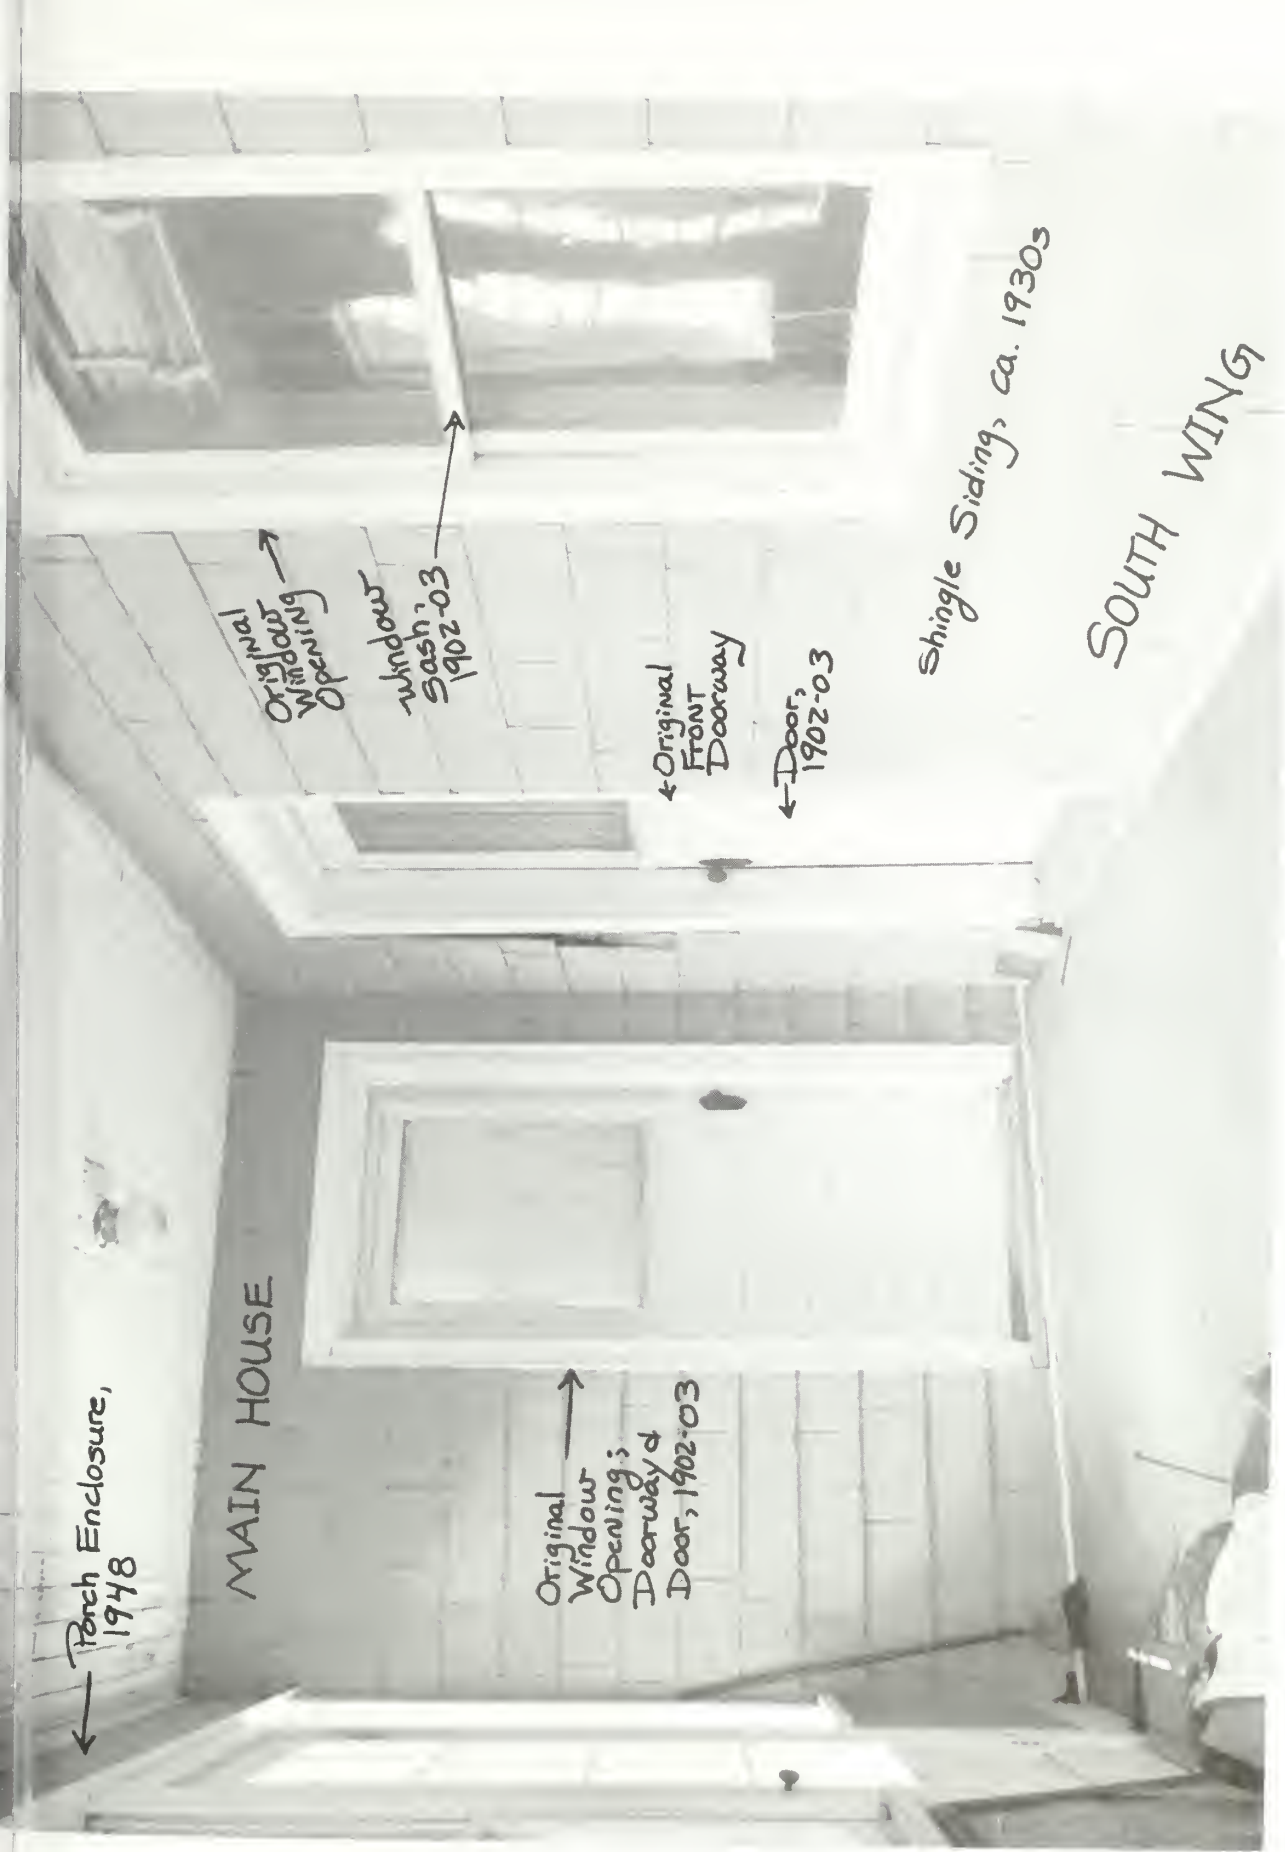 Porch Enclosure,
1948
MAIN HOUSE
Original
Window
Opening;
Doorway &
Door, 1902-03
Original
Window
Opening
Window
Sash,
1902-03
Original
Front
Doorway
Door,
1902-03
Shingle Siding, ca. 1930s
SOUTH WING